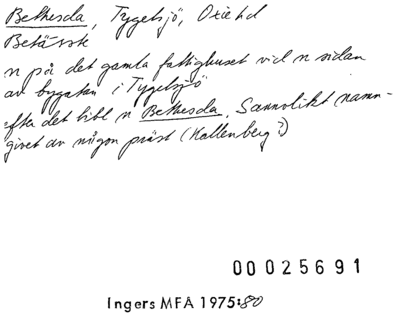 Bethesda, Tygelsjö, Oxie hd
Betässk
n på det gamla fattighuset vid n sidan
av bygatan i Tygelsjö
efter det bibl n Bethesda. Sannolikt namn-
givet av någon präst (Hallenberg?)
00025691
Ingers MFA 1975:80